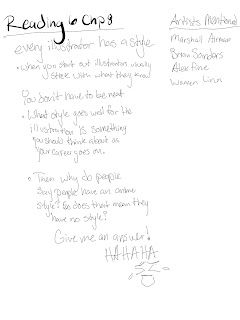 Reading 6 Chp 8
every illustrator has a style
• when you start out illustrators usually
stick with what they know
You don't have to be neat
• What style goes well for the
illustration is something
you should think about as
your career goes on.
• Then why do people
say "people" have an anime
style? does that mean they
have no style?
Give me an answer!
HAHAHA
Artists Mentioned
Marshall Arisman
Brian Sanders
Alex Fine
Warren Linn